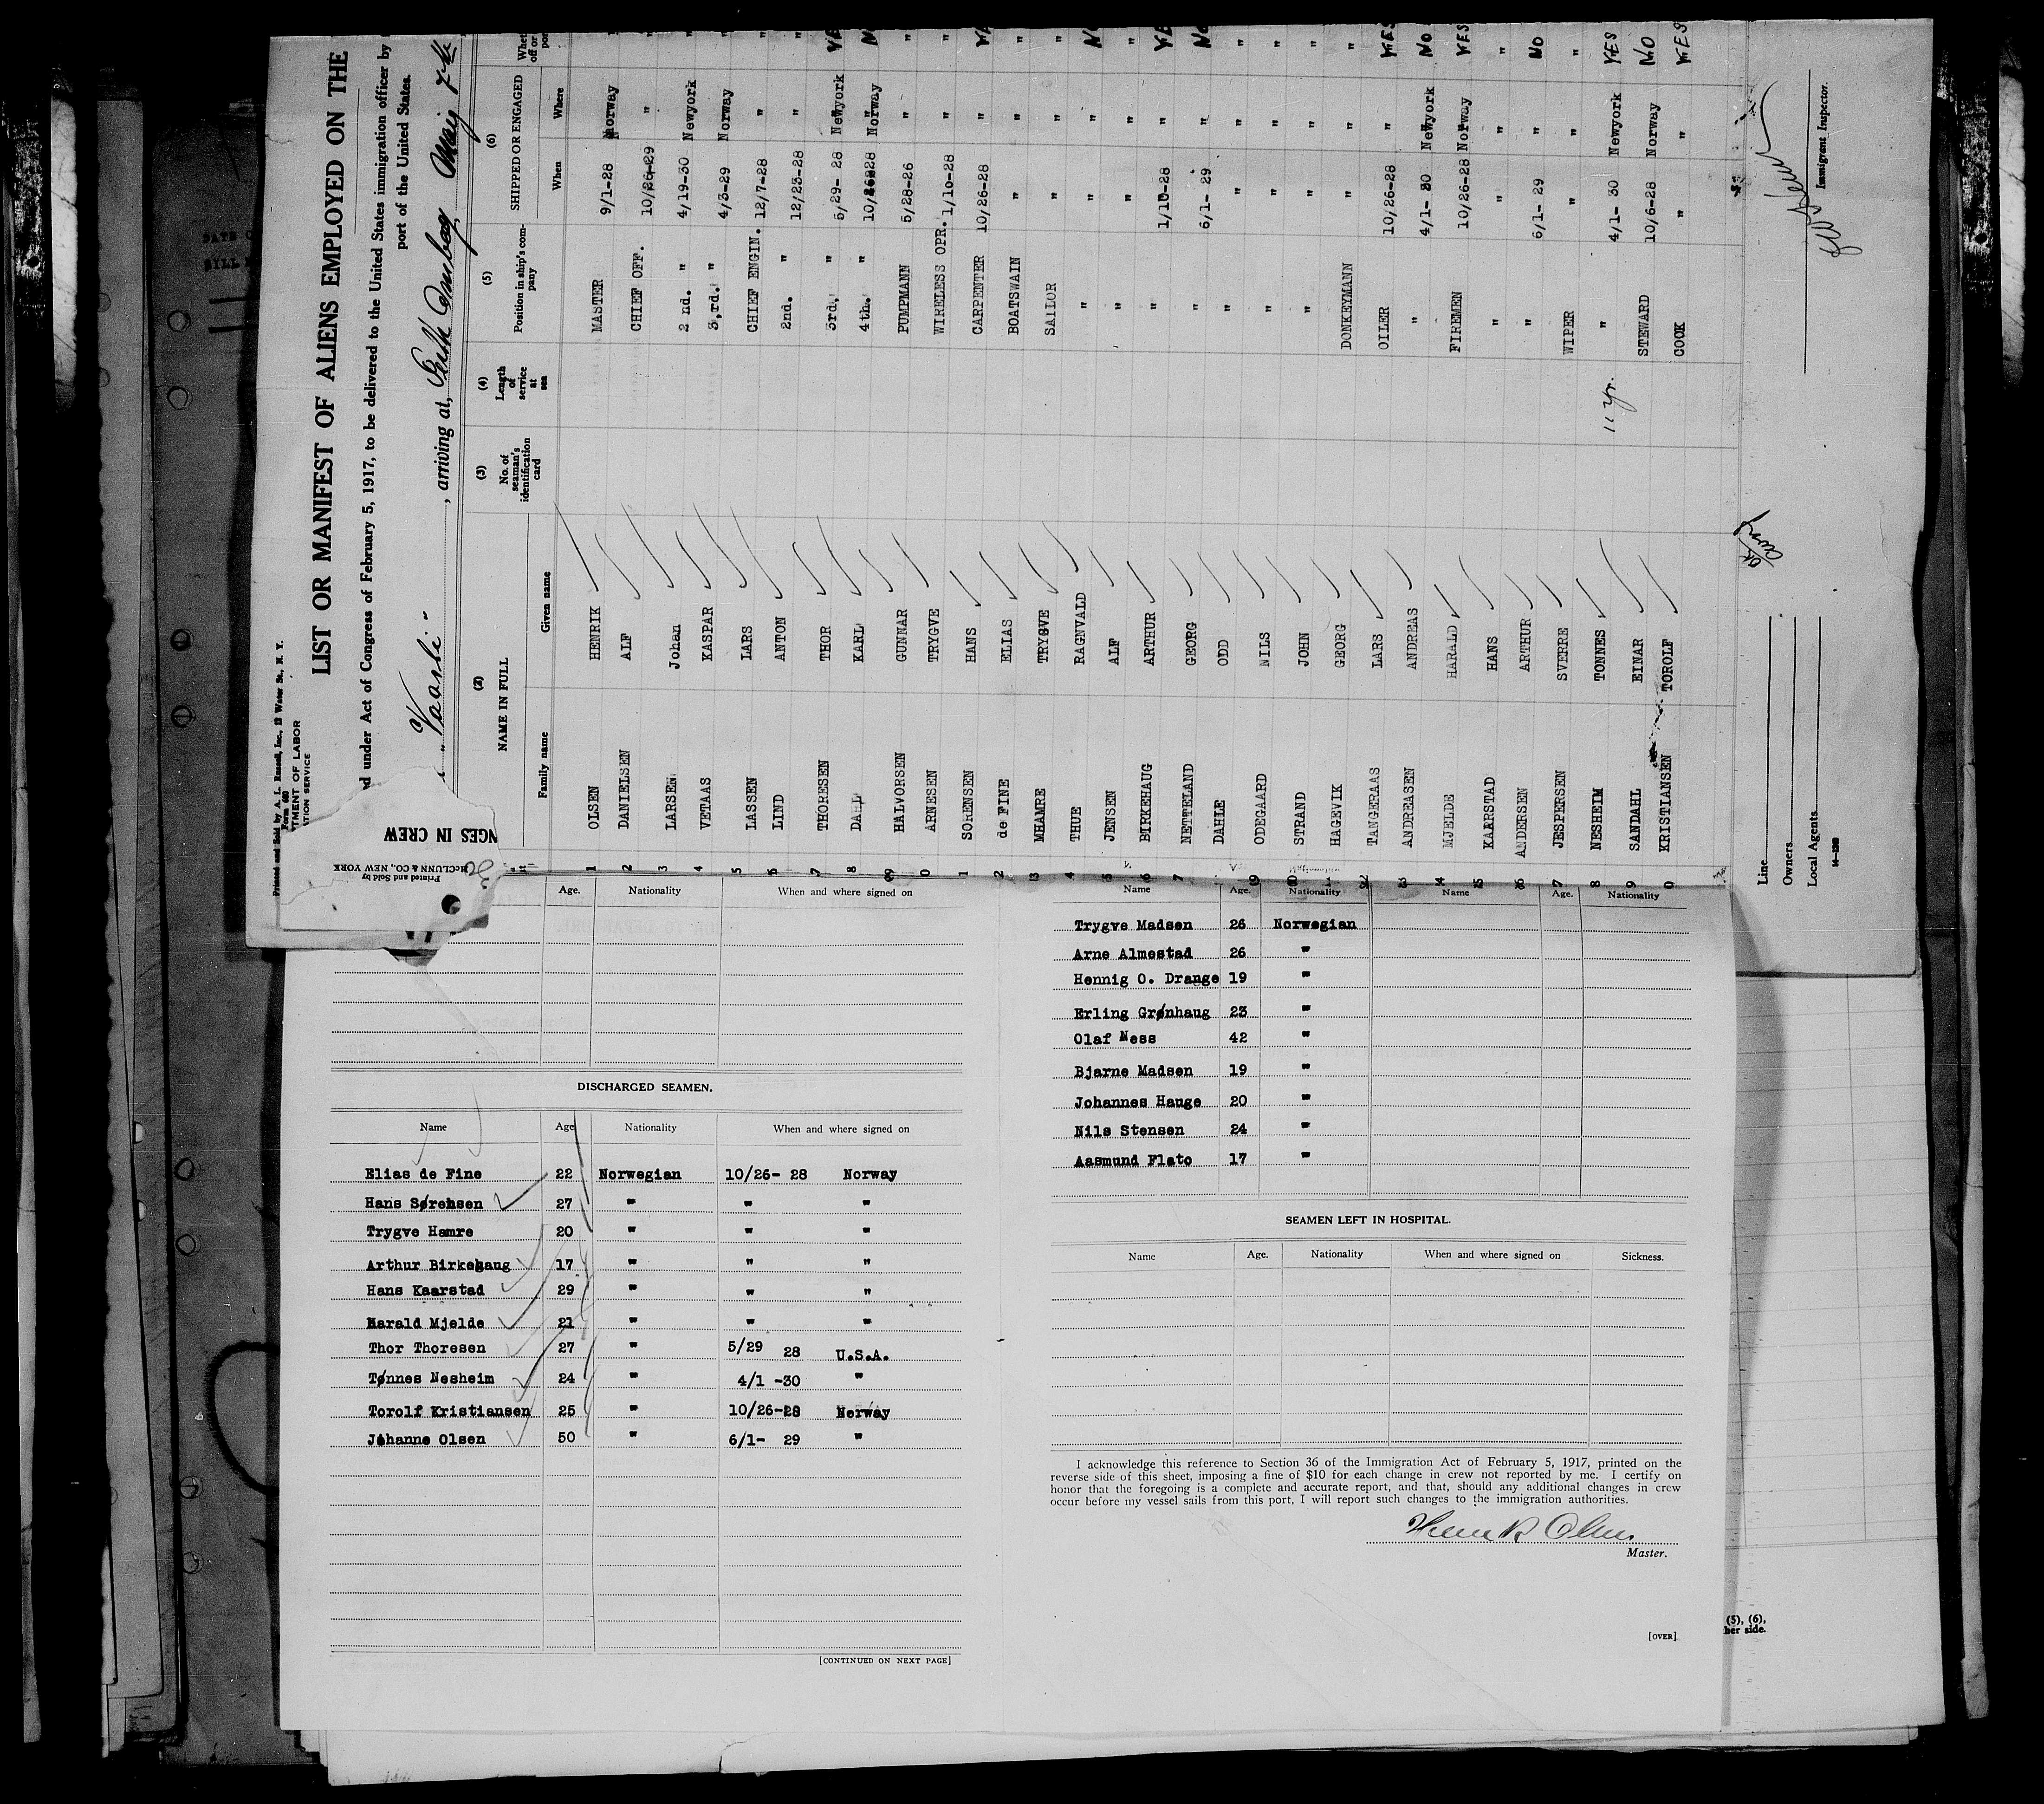 Printed and Sold by A. L. Russell, Inc., 12 Water St., N. Y.
Form 680
TMENT OF LABOR
ATION SERVICE
LIST OR MANIFEST OF ALIENS EMPLOYED ON THE
d under Act of Congress of February 5, 1917, to be delivered to the United States immigration officer by
port of the United States.
"Vaarli", arriving at, Perth Amboy, May 7th
(2) (3) (4) (5) (6)
NAME IN FULL No. of seaman's identification card Length of service at sea Position in ship's company SHIPPED OR ENGAGED
Family name Given name When Where
1 OLSEN HENRIK MASTER 9/1-28 Norway
2 DANIELSEN ALF CHIEF OFF. 10/26-29 "
3 LARSEN Johan 2 nd. " 4/19-30 Newyork
4 VETAAS KASPAR 3,rd. " 4/3-29 Norway
5 LASSEN LARS CHIEF ENGIN. 12/7-28 "
6 LIND ANTON 2nd. " 12/23-28 "
7 THORESEN THOR 3rd. " 5/29- 28 Newyork YE
8 DAHL KARL 4th. " 10/26-28 Norway N
9 HALVORSEN GUNNAR PUMPMANN 5/28-26 " "
0 ARNESEN TRYGVE WIRELESS OPR. 1/10-28 " "
1 SORENSEN HANS CARPENTER 10/26-28 " YE
2 de FINE ELIAS BOATSWAIN " " "
3 MHAMRE TRYGVE SAILOR " " "
4 THUE RAGNVALD " " " N
5 JENSEN ALF " " "
6 BIRKEHAUG ARTHUR " 1/10-28 " YE
7 NETTELAND GEORG " 6/1- 29 " No
DAHLE ODD " " " "
9 ODEGAARD NILS " " " "
STRAND JOHN " " " "
HAGEVIK GEORG DONKEYMANN " " "
TANGERAAS LARS OILER 10/26-28 " YES
ANDREASEN ANDREAS " 4/1- 30 Newyork NO
MJELDE HARALD FIREMEN 10/26-28 Norway YES
KAARSTAD HANS " " " "
ANDERSEN ARTHUR " 6/1- 29 " NO
7 JESPERSEN SVERRE WIPER " " "
8 NESHEIM TONNES " 11 yr. 4/1- 30 Newyork YES
9 SANDAHL EINAR STEWARD 10/6-28 Norway NO
0 KRISTIANSEN TOROLF COOK " " YES
Line
Owners
Local Agents
Immigrant Inspector.
NGES IN CREW
Printed and Sold by
McCLUNN & CO., NEW YORK
Age. Nationality When and where signed on
DISCHARGED SEAMEN.
Name Age Nationality When and where signed on
Elias de Fine 22 Norwegian 10/26- 28 Norway
Hans Sørensen 27 " " "
Trygve Hamre 20 " " "
Arthur Birkehaug 17 " " "
Hans Kaarstad 29 " " "
Harald Mjelde 21 " " "
Thor Thoresen 27 " 5/29 28 U.S.A.
Tønnes Nesheim 24 " 4/1 -30 "
Torolf Kristiansen 25 " 10/26-28 Norway
Johanne Olsen 50 " 6/1- 29 "
[CONTINUED ON NEXT PAGE]
Name Age. Nationality Name Age. Nationality
Trygve Madsen 26 Norwegian
Arne Almestad 26 "
Hennig O. Drange 19 "
Erling Grønhaug 23 "
Olaf Ness 42 "
Bjarne Madsen 19 "
Johannes Hauge 20 "
Nils Stensen 24 "
Aasmund Flato 17 "
SEAMEN LEFT IN HOSPITAL.
Name Age. Nationality When and where signed on Sickness.
I acknowledge this reference to Section 36 of the Immigration Act of February 5, 1917, printed on the
reverse side of this sheet, imposing a fine of $10 for each change in crew not reported by me. I certify on
honor that the foregoing is a complete and accurate report, and that, should any additional changes in crew
occur before my vessel sails from this port, I will report such changes to the immigration authorities.
Henrik Olsen
Master.
[OVER]
(5), (6),
her side.